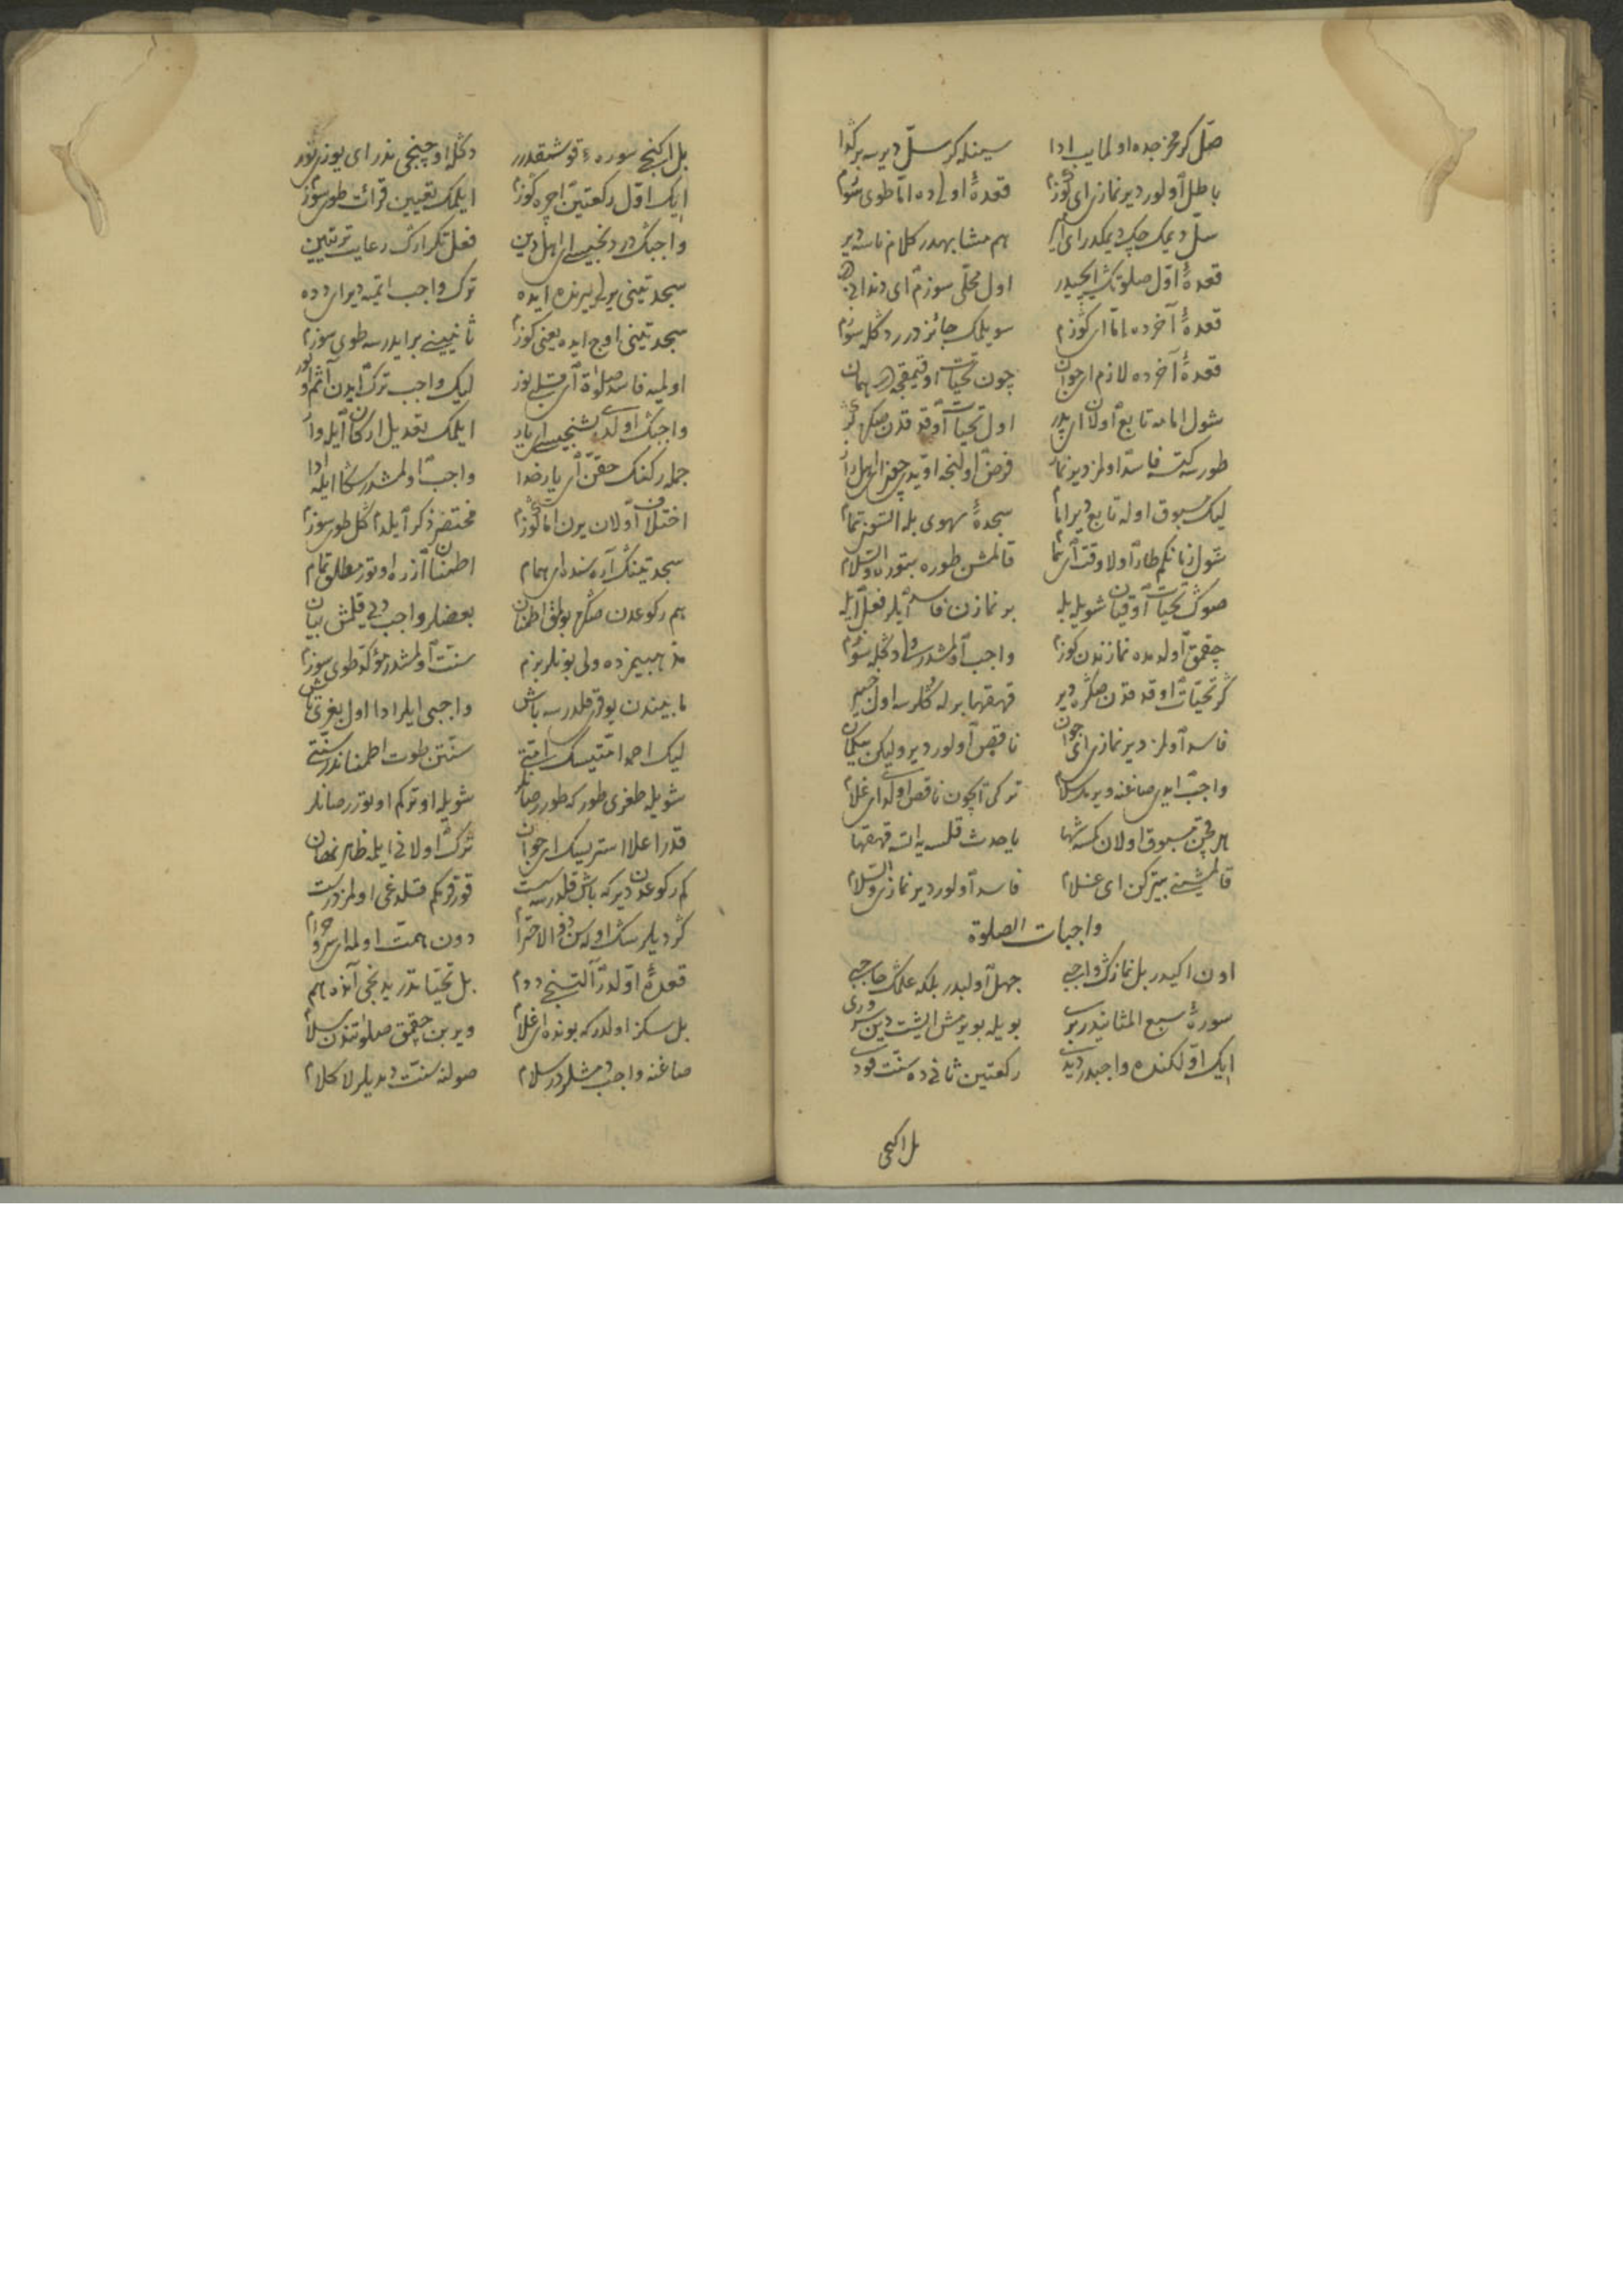 صل کر مخرجده اولمایب ادا سینله کر سل دیرسه بر کدا
باطل اولور دیر نمازی ای کوزم قعدهٔ اولی ده اما طوی سوزم
سل دیمک چک دیمکدر ای هم مشابهدر کلام ناسه دیر
قعدهٔ اول صلوتک ایچیدر اول محلی سوزم ای
قعدهٔ آخرده اما ای کوزم سویلمک جائز درر دکله سوزم
قعدهٔ آخرده لازم ای جوان چون تحیات اوقیمقجه همان
شول امامه تابع اولان ای پدر اول تحیات اوقدقدن صکره کر
طورسه کتسه فاسد اولمز دیر نماز فرض اولنجه
لیک مسبوق اوله تابع دیر امام سجدهٔ سهوی بله ایتسون تمام
شول زمانکم طار اولا وقت ای همام قالمشن طوره بتوره والسلام
صوک تحیات اوقیان شویله بله بر نمازن فاسد ایلر فعل ایله
چقمق اولدمده نمازندن کوزم واجب اولمشدر دکله سوزم
کر تحیات اوقدقدن صکره دیر قهقهایرله کلرسه اول
فاسد اولمز دیر نمازی ای جوان ناقص اولور دیر ولیکن بیکمان
واجب ایدی صاغنه ویرمک سلام ترکی ایچون ناقص اولدی ای غلام
هر قچن مسبوق اولان کسه شها یا حدث قلسه یا ایتسه قهقها
قالمشنی بیترکن ای غلام فاسد اولور دیر نمازی والسلام
واجبات الصلوة
اون ایکیدر بل نمازک واجبی جهل اولیدر بلکه علمک حاجبی
سورهٔ سبع المثانیدر بری بویله بویرمش ایشت دین سروری
ایک اولکنده واجبدر رکعتین ثانی ده سنت
بل اکنجی
بل اکنجی سوره قوشمقدرر دکله اوچنجی ندر ای یوزی نور
ایک اول رکعتین اچره کوزم ایلمک تعیین قرائت طوی سوزم
واجبک دردنجیسی ای اهل دین فعل تکرارک رعایت ترتیبین
سجدتینی بری یرنده ایده ترک واجب ایتمه دیر ای دده
سجدتینی اوچ ایده یعنی کوزم ثانیسینی بر ایدرسه طوی سوزم
اولمیه فاسد صلوة ای قبله یوز لیک واجب ترک ایدن آثم اولور
واجبک اولدی بشنجیسی ای یار ایلمک تعدیل ارکان ایله وار
جمله رکنک حقن ای یار خدا واجب اولمشدر سکا ایله ادا
اختلاف اولان یرن اما کوزم مختصر ذکر ایلدم کل طوی سوزم
سجدتینک آره سنده ای همام اطمنان ازره اوتور مطلق تمام
هم رکوعدن صکره بولمق اطمنان بعضلر واجب دیی قلمش بیان
مذهبیمزده ولی بونلر بزم سنت اولمشدر مؤکد طوی سوزم
مابیندن یوقر قلدرسه باش واجبی ایلر ادا اول بغری تاش
لیک احمد امتیسک سنتن طوت اطمناندر سنتی
شویله طغری طور که طور رصانلر شویله اوتر کم اوتورر صانلر
قدر اعلا استرسک ای جوان ترک اولانی ایلمه ظاهر نهان
کم رکوعدن دیرکه باش قلدرسه قورقرم کم قلدغی اولمز درست
کر دیلرسک اوله سن ذو الاحترام دون همت اولمه ای سرو خرام
قعدهٔ اولدر التنجی ددم بل تحیاتدر یدنجی آنده هم
بل سکز اولدر که بونده ای غلام ویربن چقمق صلوتندن سلام
صاغنه واجب دمشلردر سلام صولنه سنت دیدیلر لا کلام